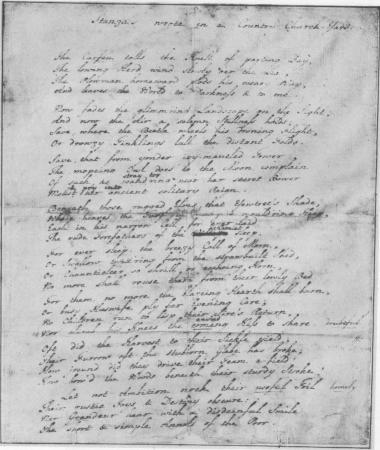 Stanza's wrote in a Country Church-Yard.
The Curfeu tolls the Knell of parting Day,
The lowing Herd wind slowly o'er the Lea,
The Plowman homeward plods his weary Way,
And leaves the World to Darkness & to me.
Now fades the glimm'ring Landscape on the Sight,
And now the Air a solemn Stillness holds;
Save, where the Beetle wheels his droning Flight,
Or drowsy Tinklings lull the distant Folds.
Save, that from yonder ivy-mantled Tower
The mopeing Owl does to the Moon complain
stray too
Of such as wandring near her secret Bower
& pry into
Molest her ancient solitary Reign.
Beneath those rugged Elms, that Yewtree's Shade,
Where heaves the Turf in many a mould'ring Heap,
Each in his narrow Cell for ever laid
Hamlet
The rude Forefathers of the Sleep.
For ever sleep. the breezy Call of Morn,
Or Swallow twitt'ring from the strawbuilt Shed,
Or Chaunticleer so shrill, or ecchoing Horn,
No more shall rouse them from their lowly Bed.
For them no more the blazeing Hearth shall burn,
Or busy Huswife ply her Evening Care;
No Children run to lisp their Sire's Return,
envied
Nor climb his Knees the coming Kiss to share. doubtful
Oft did the Harvest to their Sickle yield;
Their Furrow oft the stubborn Glebe has broke;
How jocund did they drive their Team a-field!
How bow'd the Woods beneath their sturdy Stroke!
Let not Ambition mock their useful Toil homely
Their rustic Joys & Destiny obscure;
Nor Grandeur hear with a disdainful Smile
The short & simple Annals of the Poor.